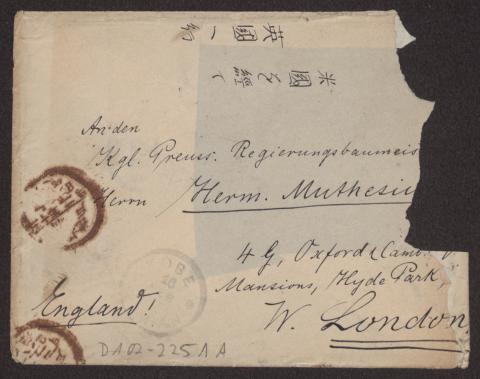 英國
米國を経て
An den
Kgl. Preuss. Regierungsbaumeis
Herrn Herm. Muthesiu
4 G, Oxford & Cam
Mansions, Hyde Park,
W. London
England!
OBE
D102-2251A